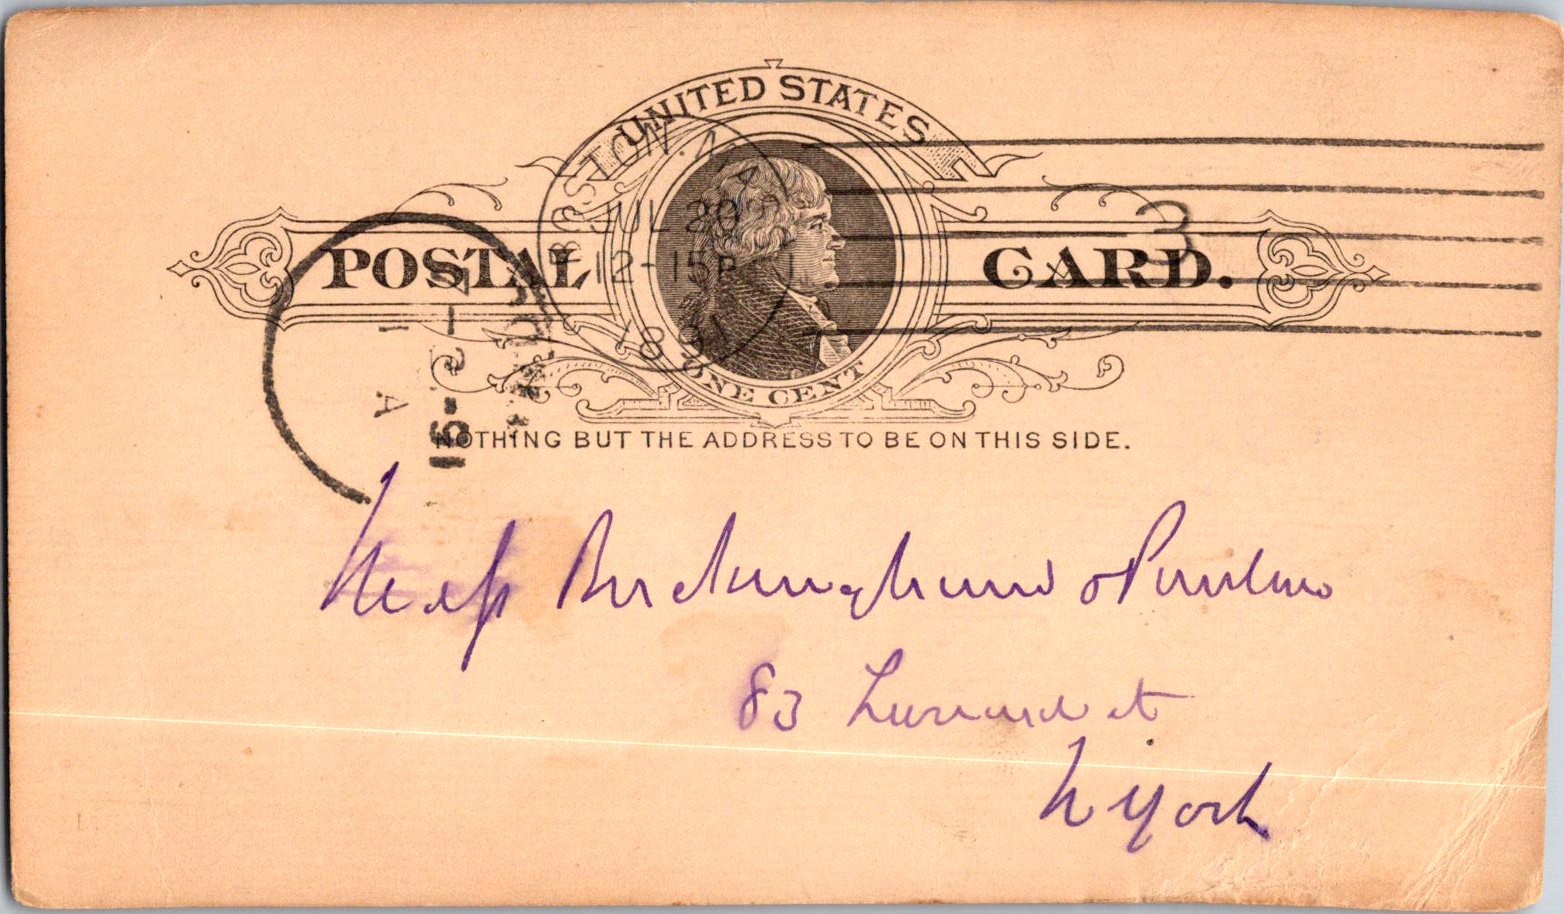 UNITED STATES
POSTAL CARD.
ONE CENT
NOTHING BUT THE ADDRESS TO BE ON THIS SIDE.
BOSTON. MASS.
JUL 20
12-15P
1891
3
7-21
A
16-91
Messrs Buckingham & Paulson
83 Leonard st
N York